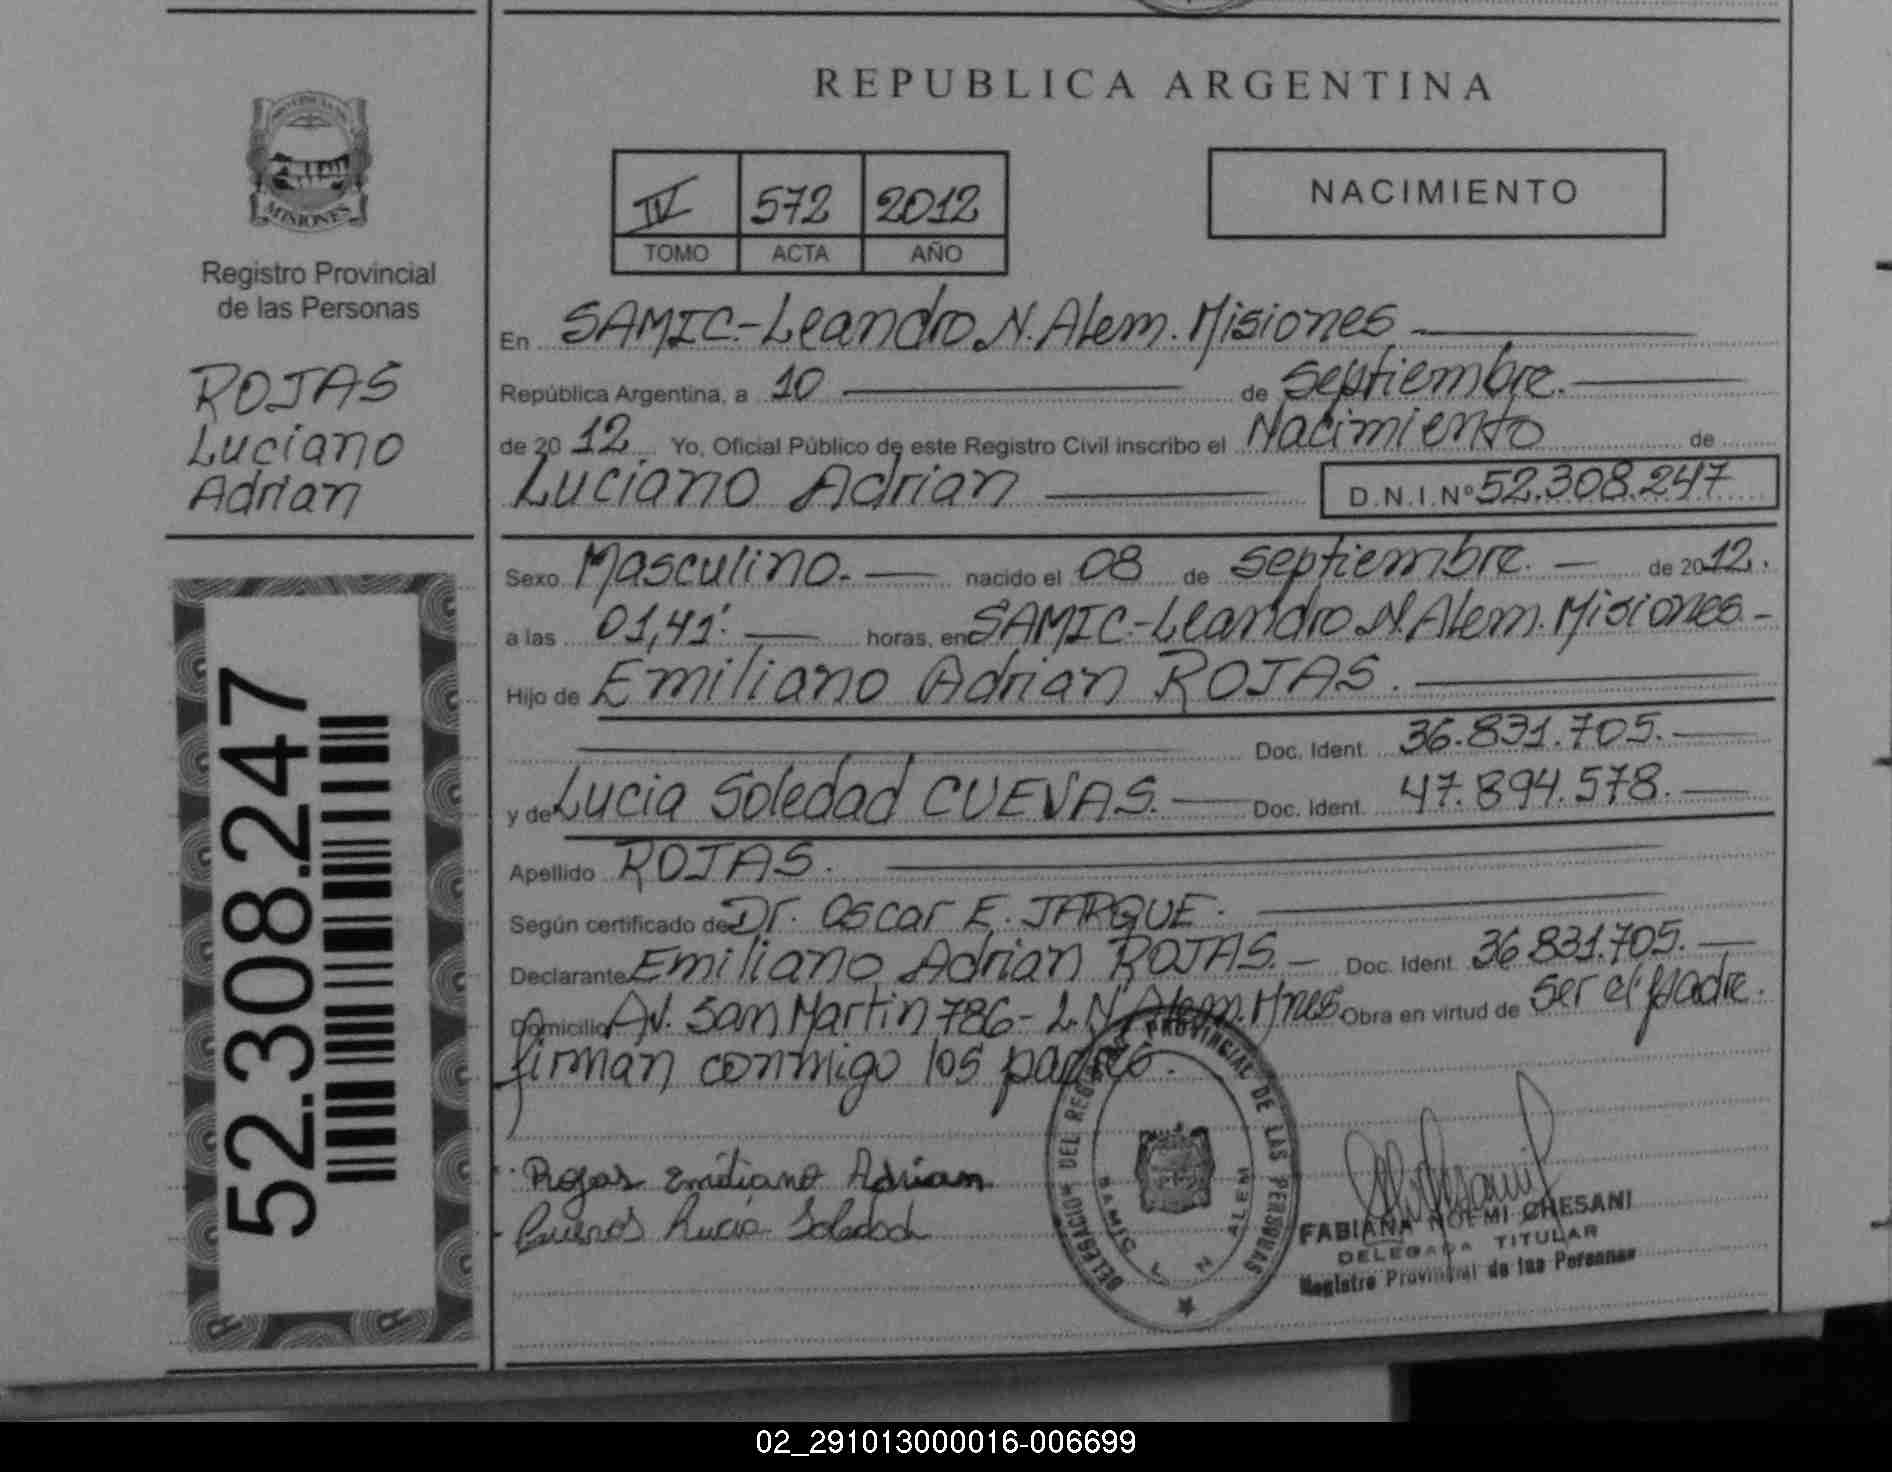 PROVINCIA DE
MISIONES
Registro Provincial
de las Personas
ROJAS
Luciano
Adrian
52.308.247
52.308.247
REPUBLICA ARGENTINA
IV 572 2012
TOMO ACTA AÑO
NACIMIENTO
En SAMIC-Leandro N. Alem. Misiones
República Argentina, a 10 de Septiembre.
de 2012 Yo, Oficial Público de este Registro Civil inscribo el Nacimiento de
Luciano Adrian D.N.I.Nº 52.308.247
Sexo Masculino.- nacido el 08 de septiembre. de 2012.
a las 01,41'. horas, en SAMIC-Leandro N. Alem. Misiones.-
Hijo de Emiliano Adrian ROJAS.
Doc. Ident. 36.831.705.
y de Lucia Soledad CUEVAS. Doc. Ident. 47.894.578.
Apellido ROJAS.
Según certificado de Dr. Oscar E. JARQUE.
Declarante Emiliano Adrian ROJAS. Doc. Ident. 36.831.705.
Domicilio Av. San Martin 786-L.N. Alem. Mnes. Obra en virtud de ser el padre.
firman conmigo los padres.
Rojas Emiliano Adrian
Lucia Soledad
DELEGACION DEL REGISTRO PROVINCIAL DE LAS PERSONAS
SAMIC L N ALEM
FABIANA NOEMI CHESANI
DELEGADA TITULAR
Registro Provincial de las Personas
02_291013000016-006699